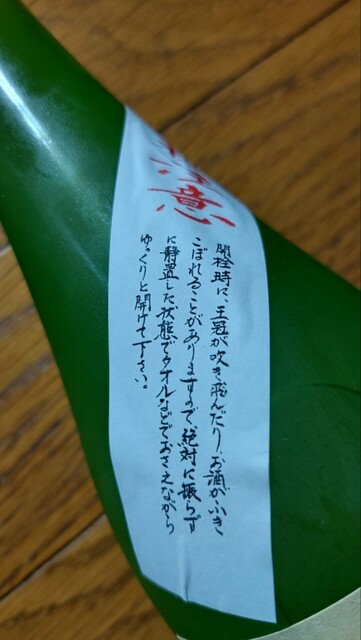 注意
開栓時に、王冠が吹き飛んだり、お酒がふき
こぼれることがありますので、絶対に振らず
に静置した状態でタオルなどでおさえながら
ゆっくりと開けて下さい。